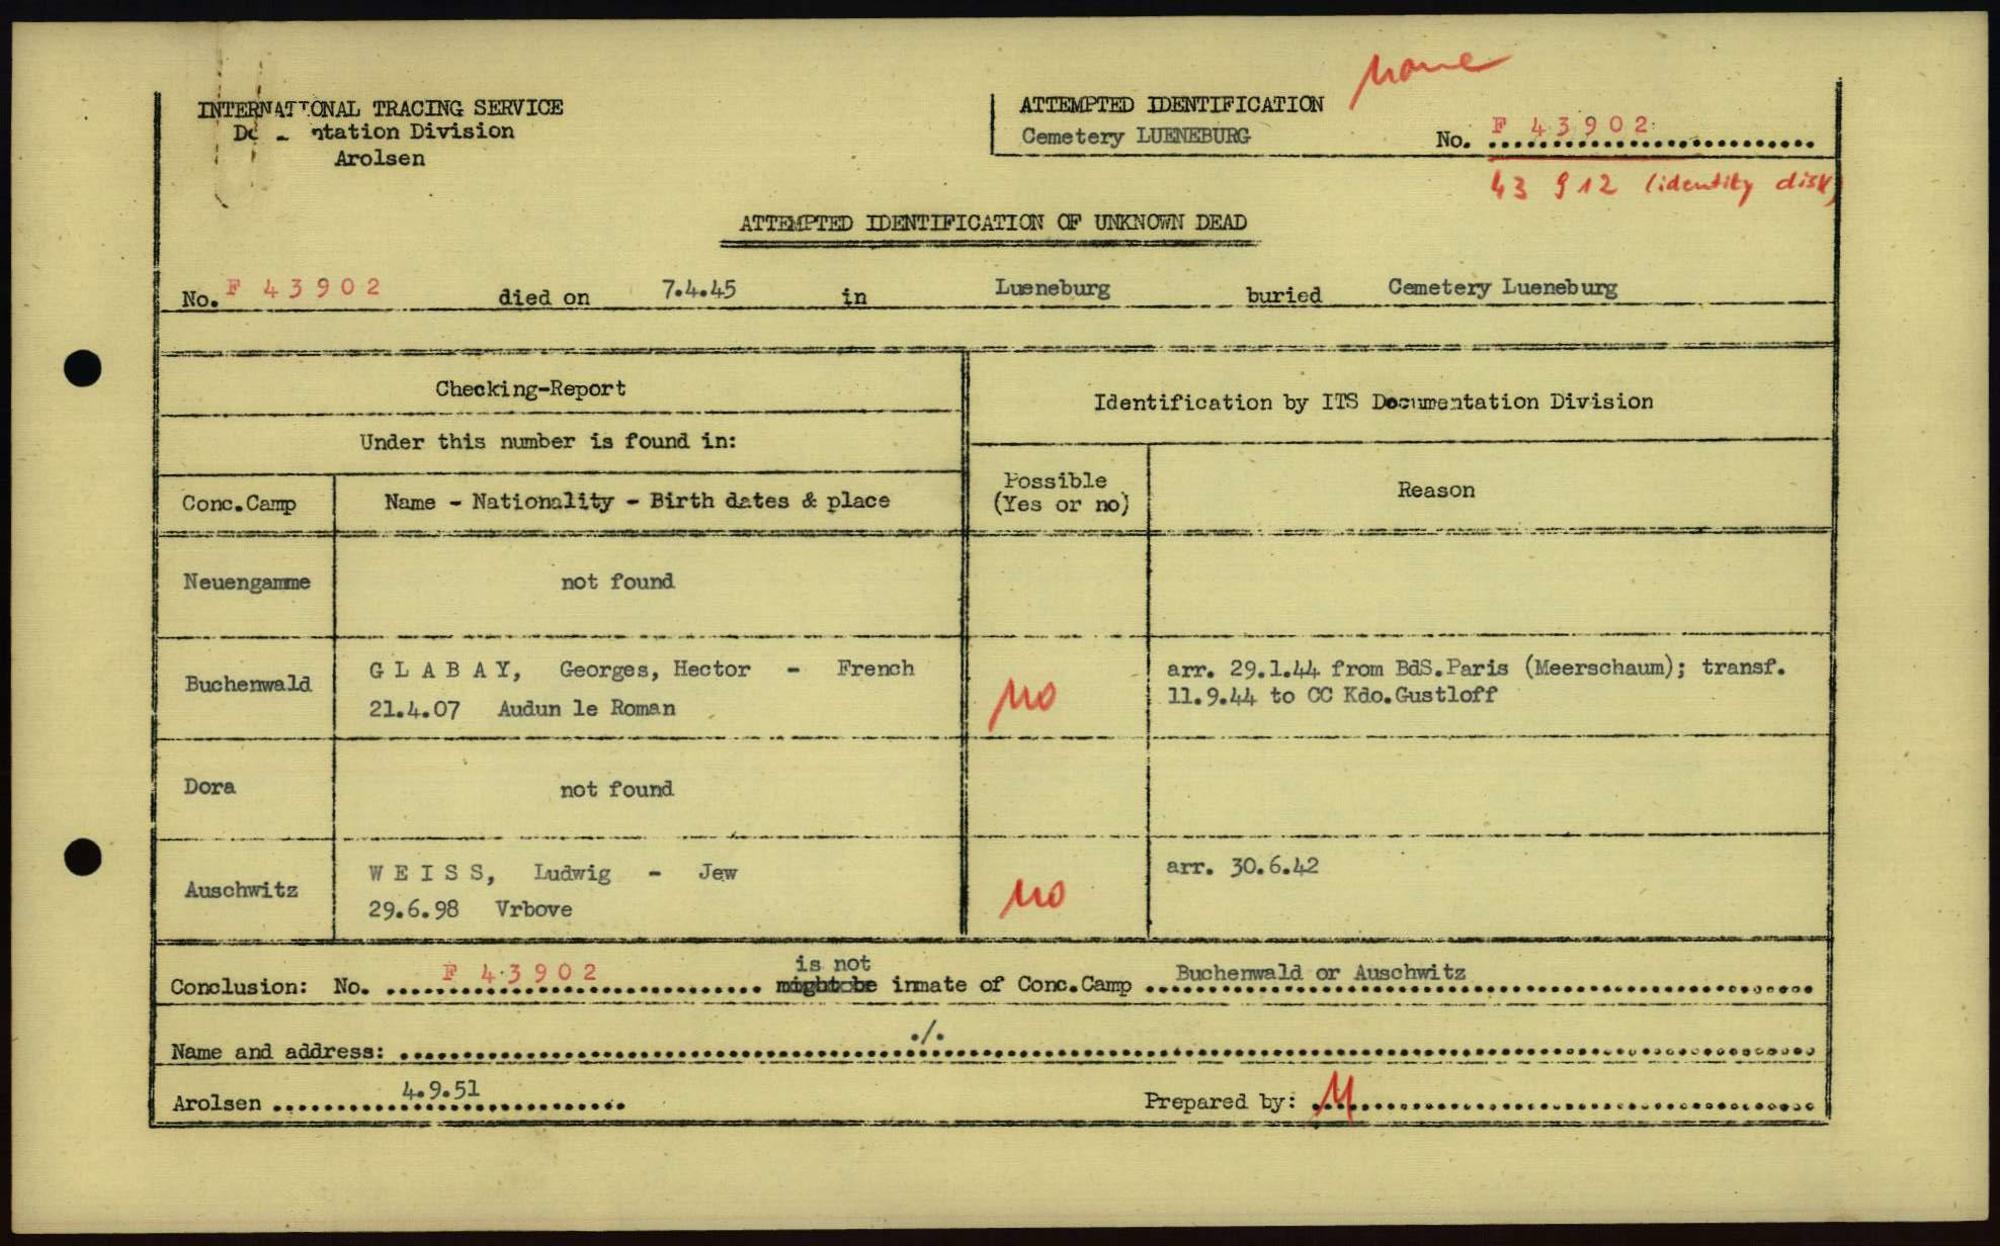 none
INTERNATIONAL TRACING SERVICE
Arolsen
ntation Division
ATTEMPTED IDENTIFICATION
Cemetery LUENEBURG
No. F 43902
43 912 (identity disk)
ATTEMPTED IDENTIFICATION OF UNKNOWN DEAD
No. F 43902 died on 7.4.45 in Lueneburg buried Cemetery Lueneburg
Checking-Report
Under this number is found in:
Identification by ITS Documentation Division
Conc.Camp
Name - Nationality - Birth dates & place
Possible
(Yes or no)
Reason
Neuengamme
not found
Buchenwald
G L A B A Y, Georges, Hector - French
21.4.07 Audun le Roman
no
arr. 29.1.44 from BdS.Paris (Meerschaum); transf.
11.9.44 to CC Kdo.Gustloff
Dora
not found
Auschwitz
W E I S S, Ludwig - Jew
29.6.98 Vrbove
no
arr. 30.6.42
is not
Conclusion: No. F 43902 might be inmate of Conc.Camp Buchenwald or Auschwitz
Name and address: ./.
Arolsen 4.9.51
Prepared by: M